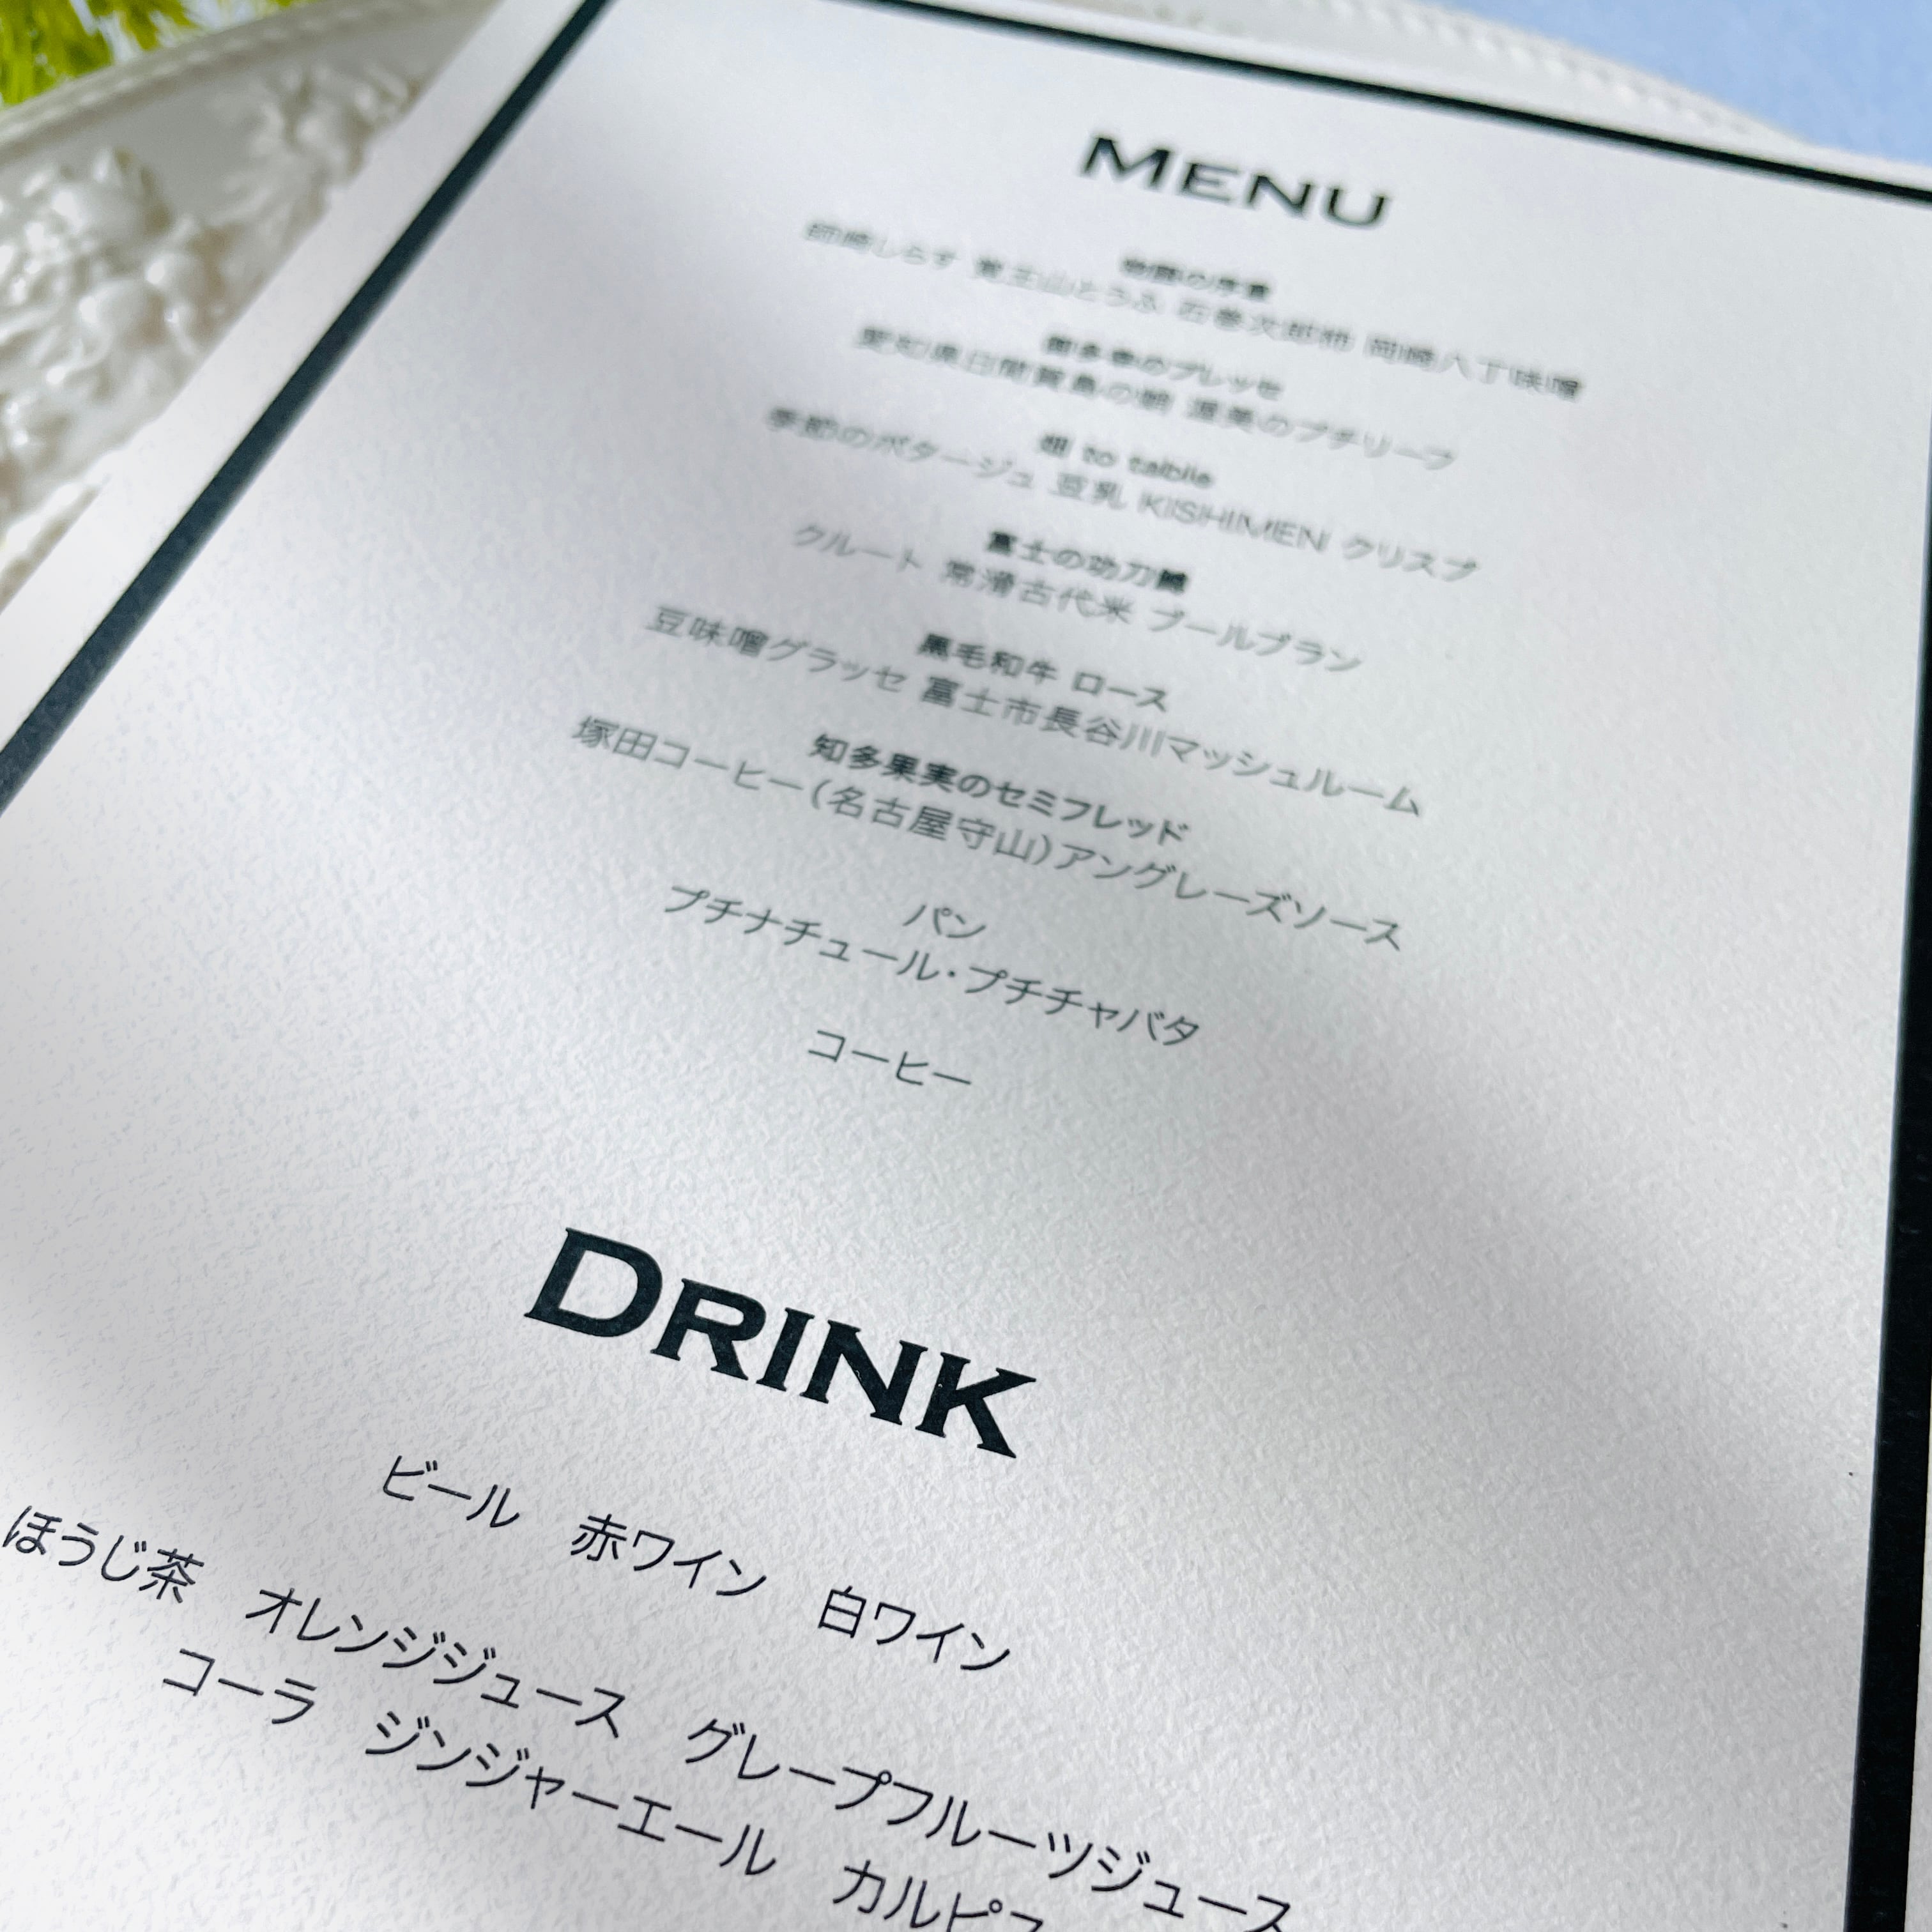 MENU
師崎しらす 覚王山とうふ 石巻次郎柿 岡崎八丁味噌
御多幸のプレッセ
愛知県日間賀島の蛸 渥美のプチリーフ
畑 to table
季節のポタージュ 豆乳 KISHIMEN クリスプ
富士の功刀鱒
クルート 常滑古代米 ブールブラン
黒毛和牛 ロース
豆味噌グラッセ 富士市長谷川マッシュルーム
知多果実のセミフレッド
塚田コーヒー(名古屋守山)アングレーズソース
パン
プチナチュール・プチチャバタ
コーヒー
DRINK
ビール 赤ワイン 白ワイン
ほうじ茶 オレンジジュース グレープフルーツジュース
コーラ ジンジャーエール カルピス